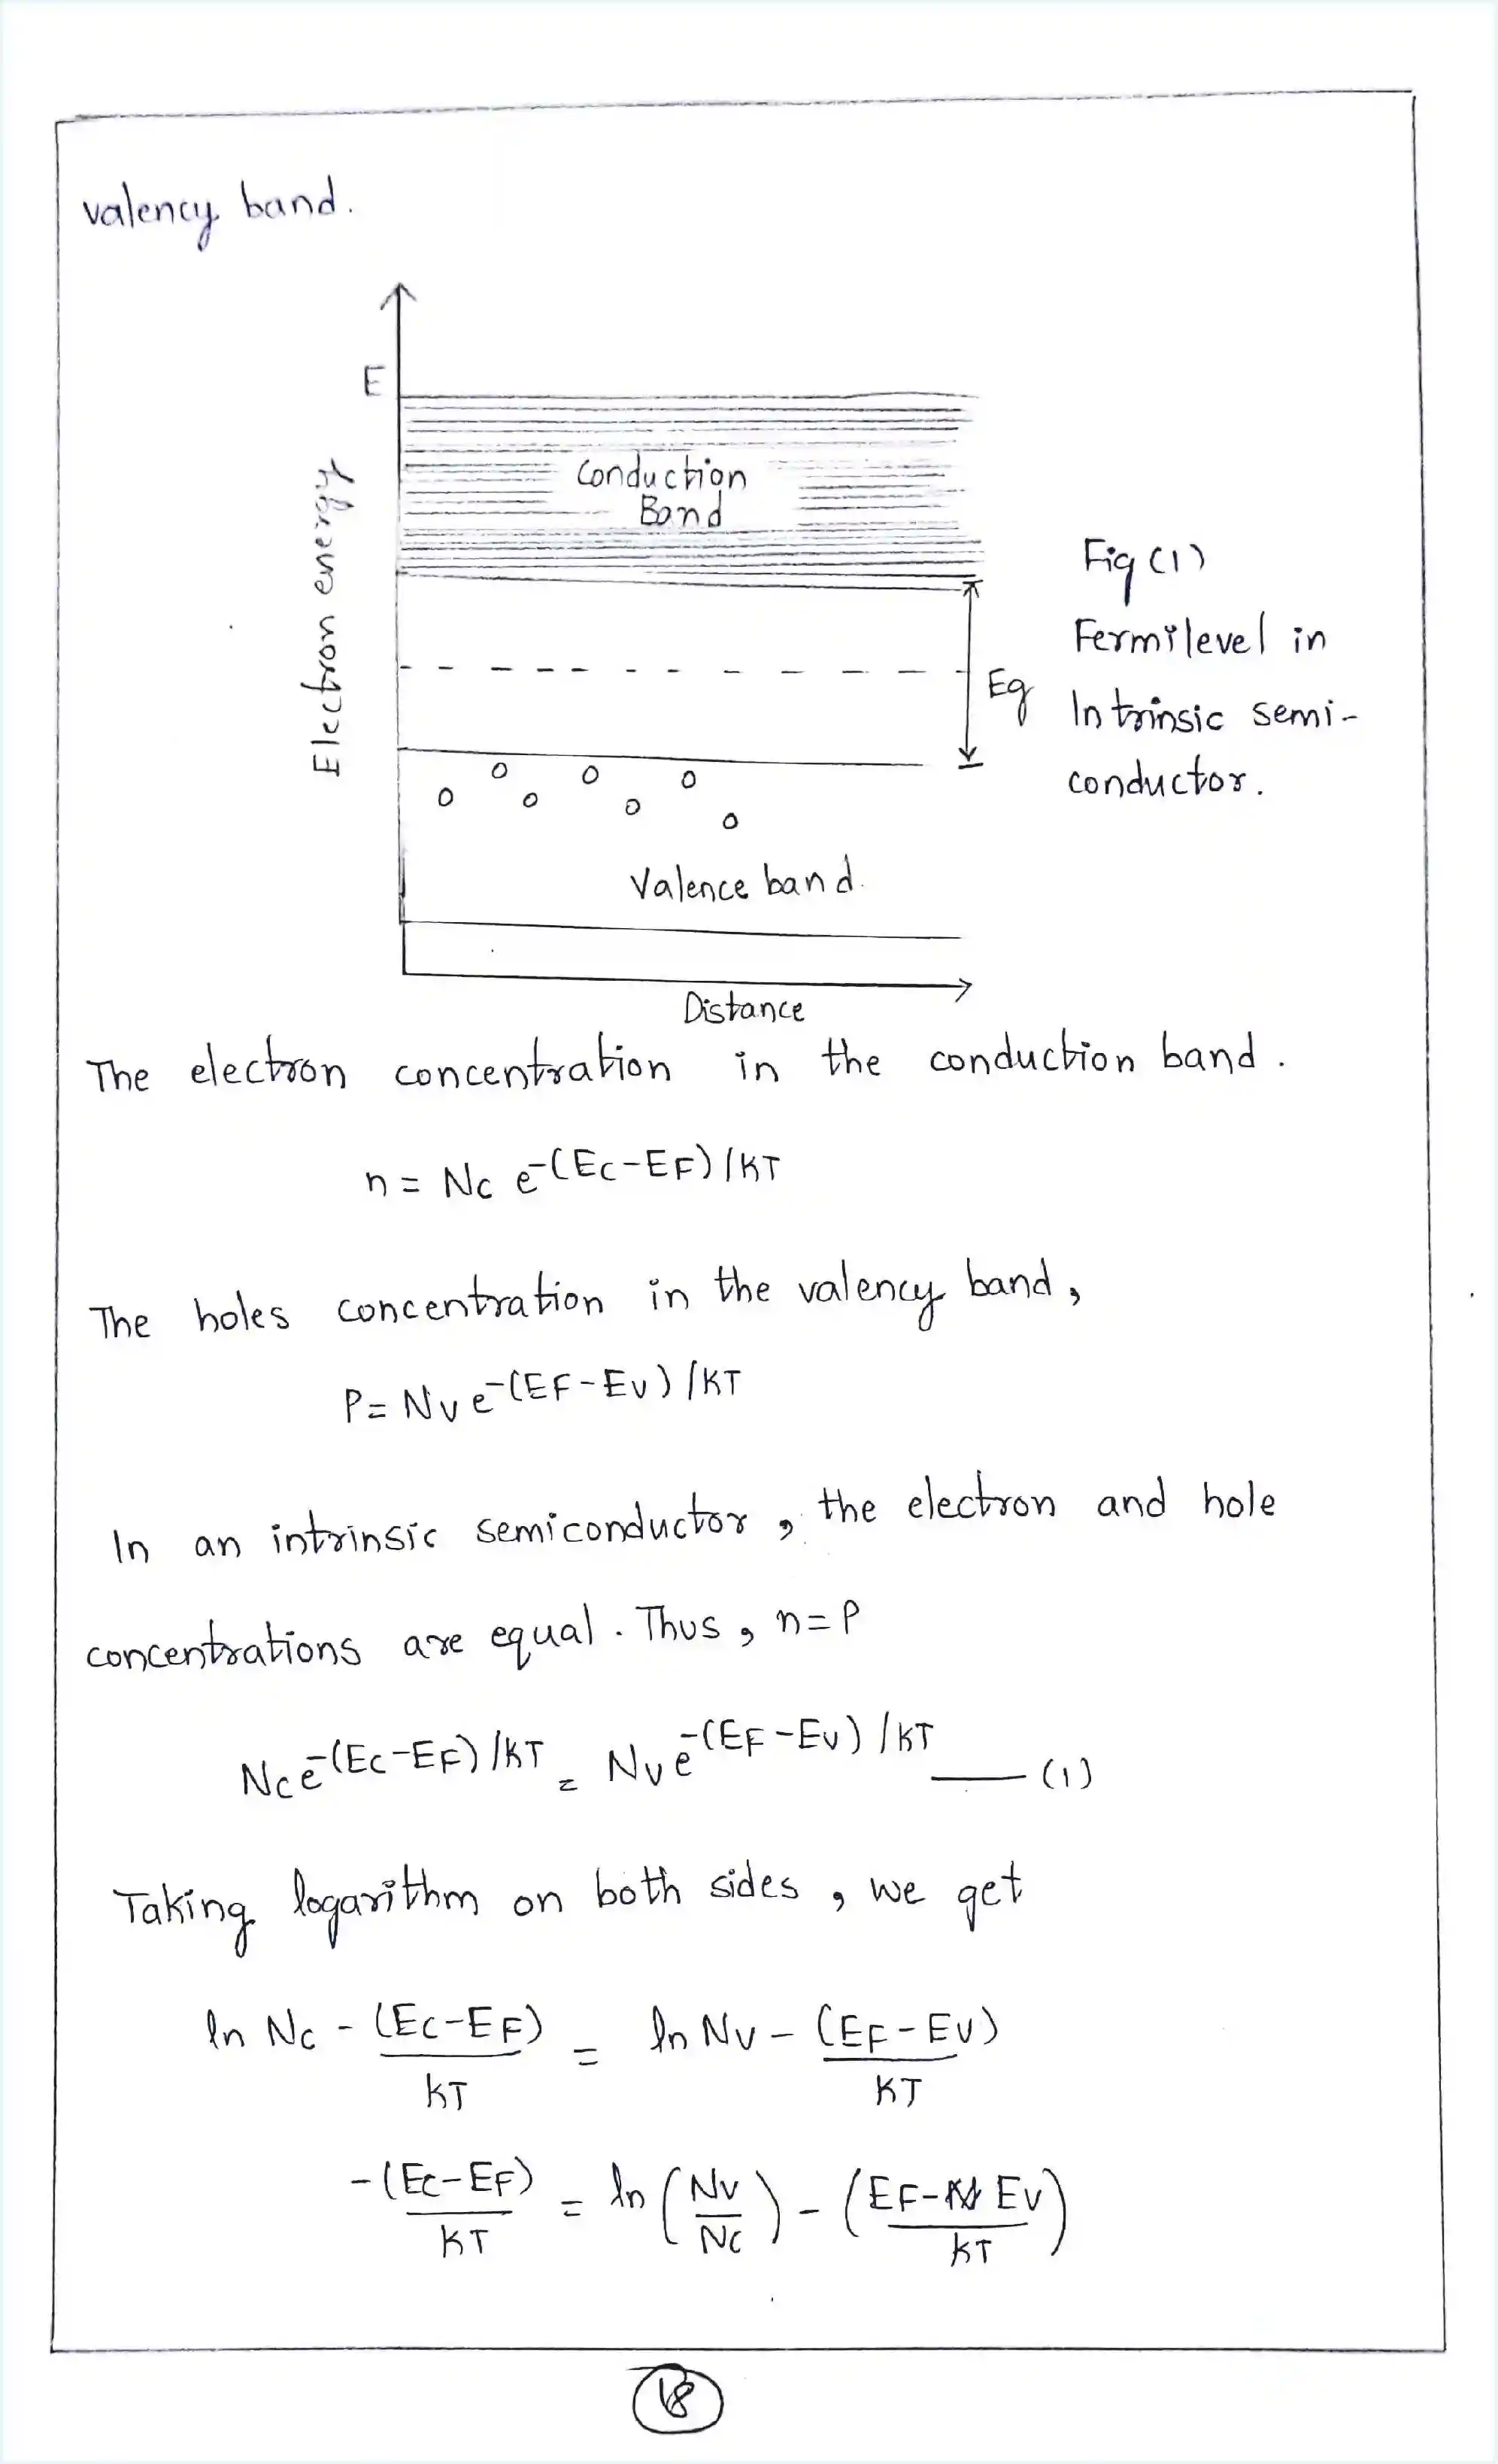 valency band.
E
Electron energy
Conduction
Band
Eg
Fig (1)
Fermilevel in
Intrinsic semi-
conductor.
Valence band.
Distance
The electron concentration in the conduction band.
n = Nc e^-(Ec-EF)/KT
The holes concentration in the valency band,
P = Nv e^-(EF-Ev)/KT
In an intrinsic semiconductor, the electron and hole
concentrations are equal. Thus, n=P
Nc e^-(Ec-EF)/KT = Nv e^-(EF-Ev)/KT —— (1)
Taking logarithm on both sides, we get
ln Nc - (Ec-EF)/KT = ln Nv - (EF-Ev)/KT
-(Ec-EF)/KT = ln (Nv/Nc) - (EF-Ev/KT)
18